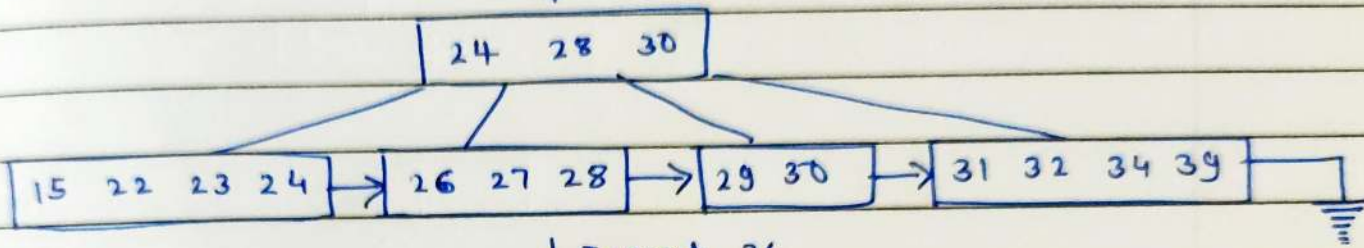 24 28 30
15 22 23 24 → 26 27 28 → 29 30 → 31 32 34 39